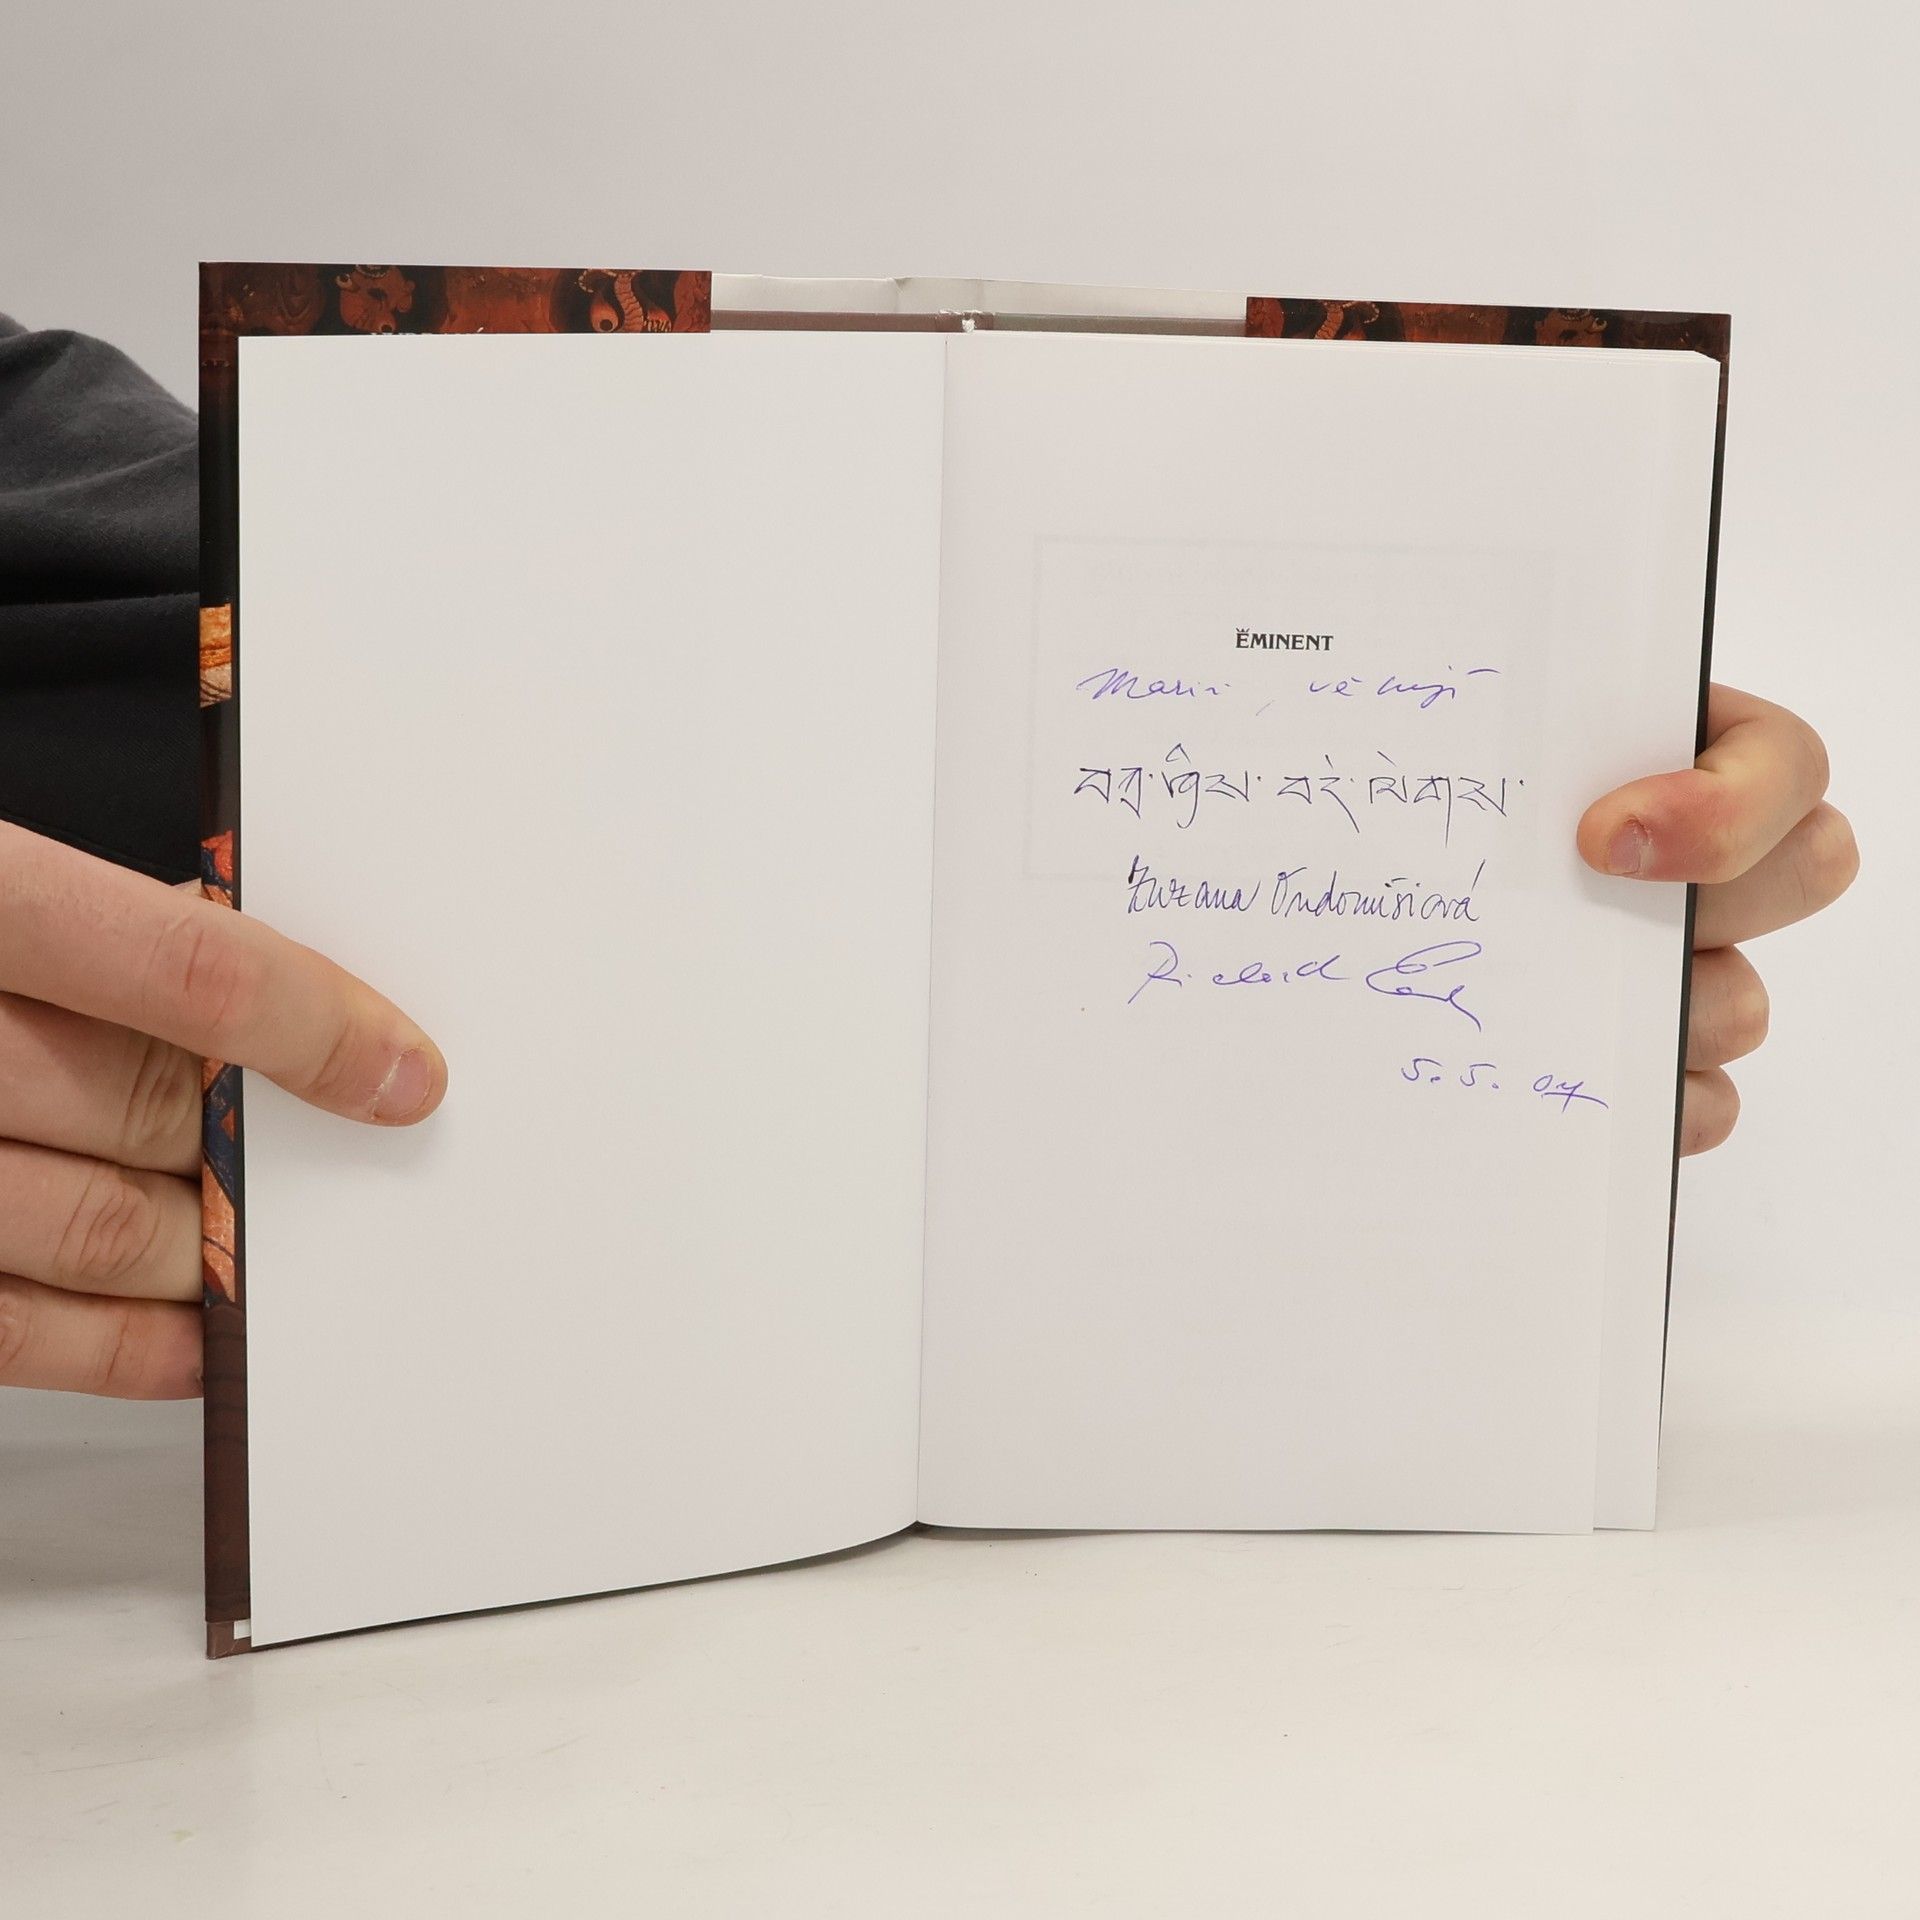 EMINENT
Marii, věnují
བཀྲ་ཤིས་བདེ་ལེགས་
Zuzana Ondomišiová
Richard
5. 5. 04